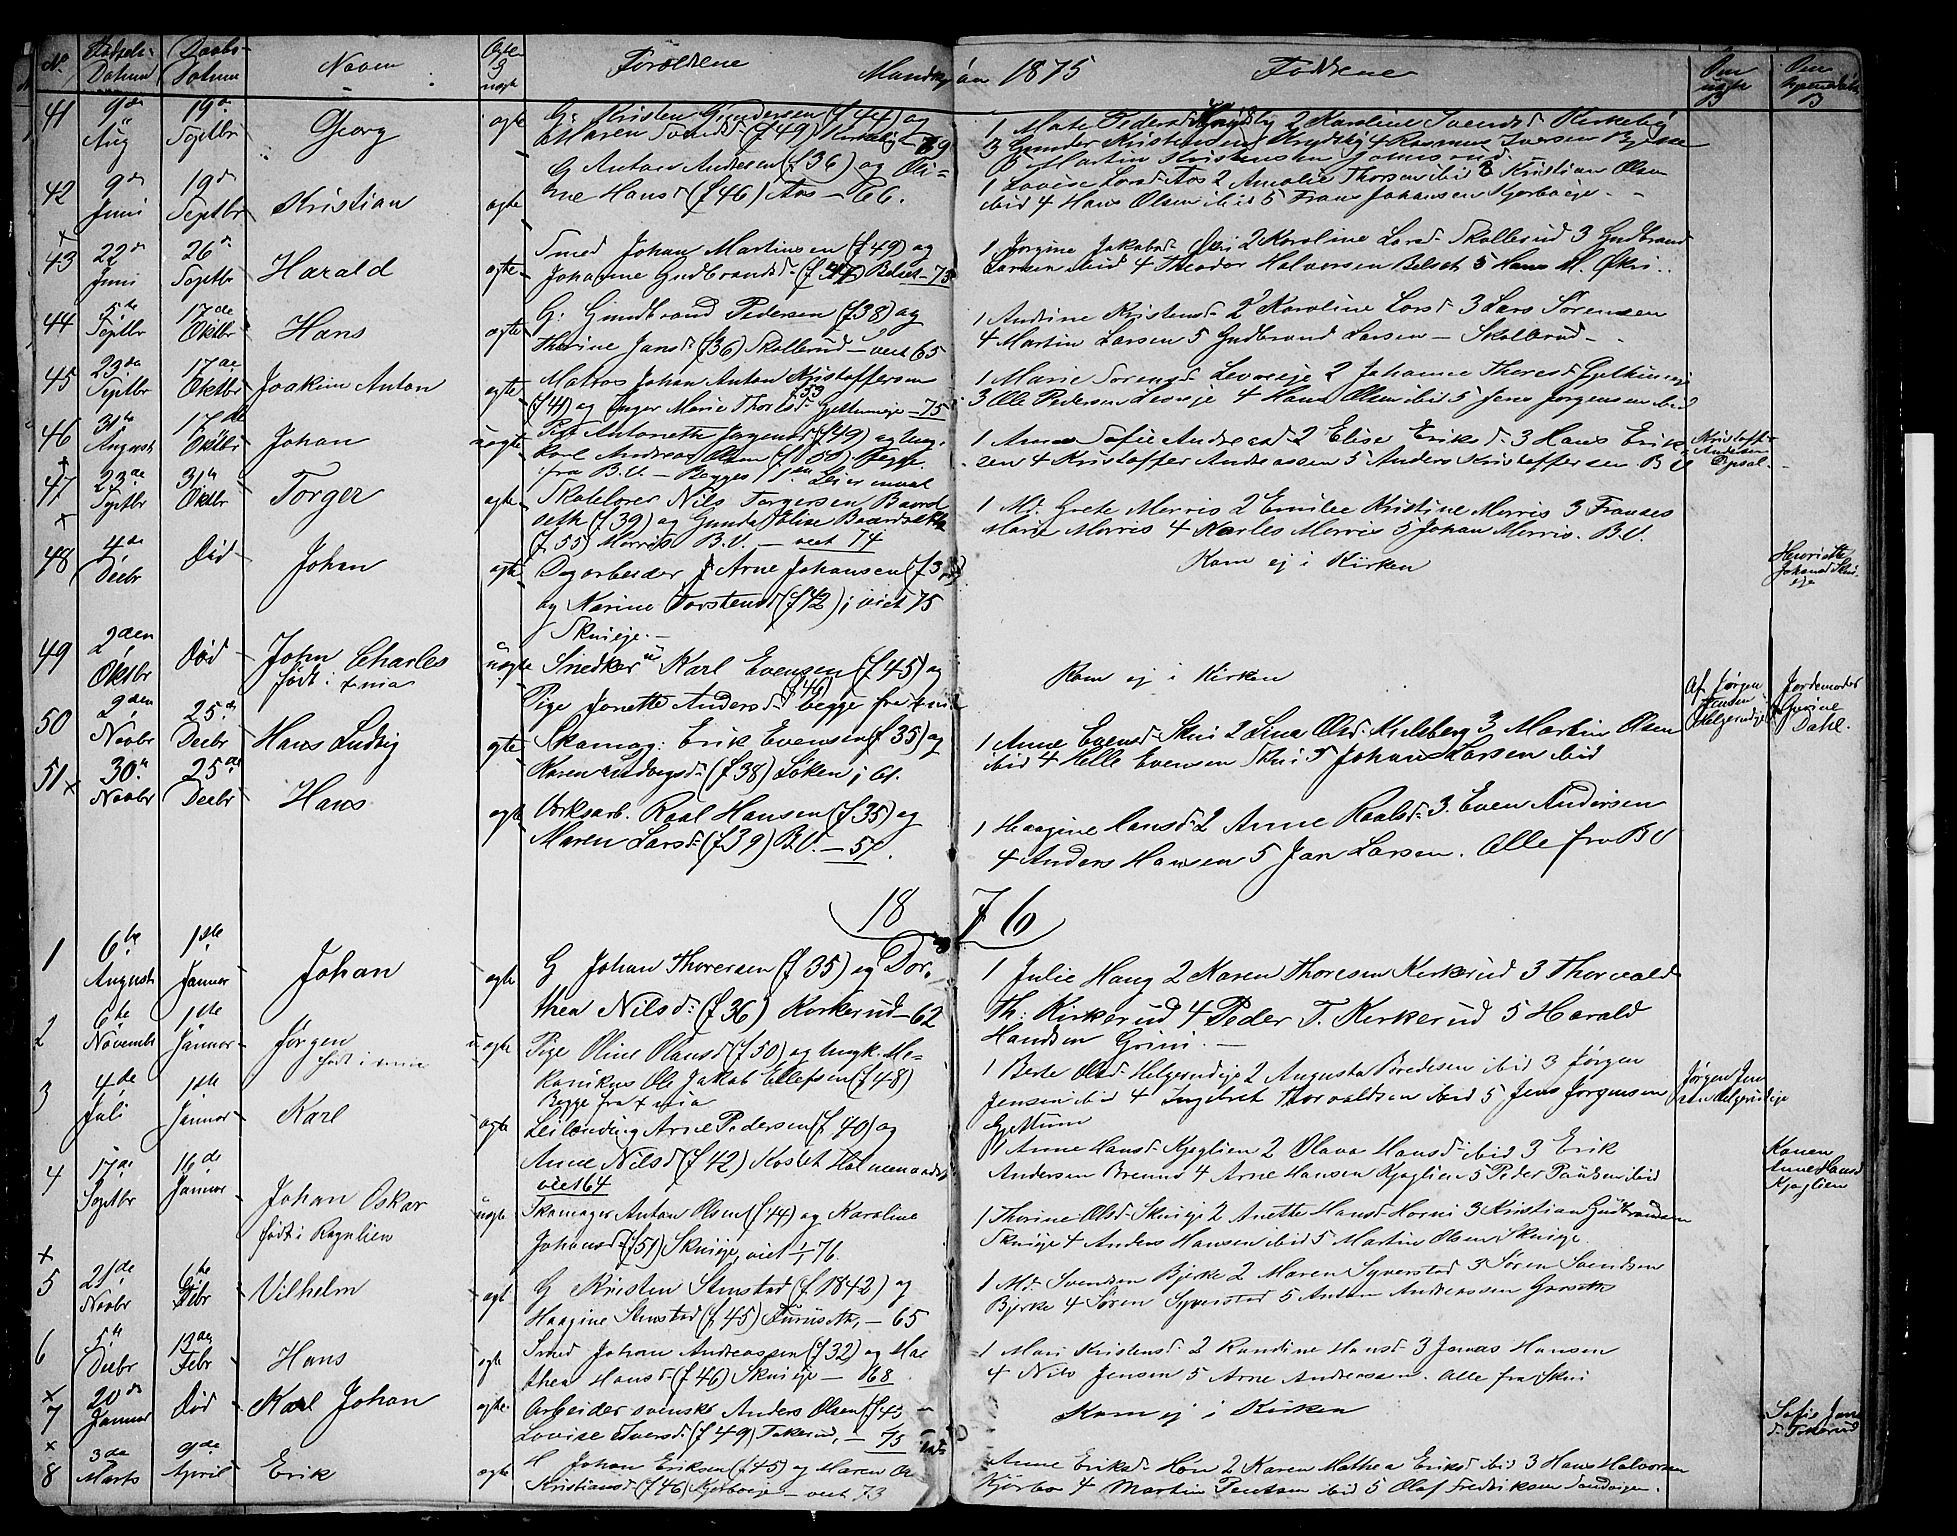 No. Fødsels- Datum Daabs- Datum Navn Ægte & uægte Forældrene Mandkjøn 1875 Faddrene Om uægte B Om hjemmedøbt B
41 9de Aug 19de Septbr Georg ægte G: Kristen Gundersen (f 44) og
Maren Svendsd: (f 49) Kirkeby – 69
1 Mate Pedersd. 2 Karoline Svendsd. Kirkeby
3 Gunder Kristensen 4 Rasmus Iversen Bjerke
5 Martin Kristensen
42 9de Juni 19de Septbr Kristian ægte G Anton Andersen (f 36) og Oli-
ne Hansd: (f 46) Aas – 66.
1 Lovise Larsd. Aas 2 Amalie Thorsen ibid 3 Kristian Olsen
ibid 4 Hans Olsen ibid 5 Frans Johansen Kjørboeje
x
43 22de Juni 26de Septbr Harald ægte Smed Johan Martinsen (f 49) og
Johanne Gudbrandsd: (f 44) Belset – 73
1 Jørgine Jakobsd. Skui 2 Karoline Larsd. Skollerud 3 Gudbrand
Larsen ibid 4 Theodor Halvorsen Belset 5 Hans M. Økri
44 5te Septbr 17de Oktbr Hans ægte G: Gundbrand Pedersen (f 38) og
Thorine Jansd: (f 36) Skollerud – viet 65
1 Andrine Kristensd. 2 Karoline Larsd 3 Lars Sørensen
4 Martin Larsen 5 Gudbrand Larsen – Skollerud
45 23de Septbr 17de Oktbr Joakim Anton ægte Matros Johan Anton Kristoffersen
(f 41) og Inger Marie Thorlsd: 53 Gjettumeje – 75
1 Marie Sorensd. Levreeje 2 Johanne Thoresd Gjettumeje
3 Ole Pedersen Levreje 4 Hans Olsen ibid 5 Jens Jørgensen ibid
46 31te August 17de Oktbr Johan uægte Pige Antonette Jørgensd (f 49) og Ungk.
Karl Andreas Olsen (f 50) Begge
fra B.V. – Begges 1ste Leiermaal
1 Anne Sofie Andreasd 2 Elise Eriksd. 3 Hans Erik-
sen 4 Kristoffer Andreassen 5 Anders Kristoffersen B V
Kristoffer Andersen
x
47 23de Septbr 31te Oktbr Torger ægte Skolelærer Nils Torgersen Baard-
seth (f 39) og Gunda Elise Baardseth
(f 55) Morris B.V. – viet 74
1 Md. Grete Morris 2 Emilie Kristine Morris 3 Franses
Marie Morris 4 Karles Morris 5 Johan Morris. B.V.
x
48 4de Decbr Død Johan ægte Dagarbeider Arne Johansen (f 3
og Karine Torstensd (f 42) i viet 75
Skuieje. –
Kom ej i Kirken
Henriette Johansd Skui-
eje
49 2den Oktbr Død John Charles
født i xnia
uægte Snedker Karl Evensen (f 45) og
Pige Jonette Andersd: (f 46) begge fra xnia
Kom ej i Kirken
Af Jørgen Jensen Helgerudeje
Jordemoder
Dahl.
50 2den Novbr 25de Decbr Hans Ludvig ægte Skomag: Erik Evensen (f 35) og
Karen Ludvigsd: (f 38) Løken i 61.
1 Anne Evensd. Skui 2 Lina Olsd. Kulsberg 3 Martin Olsen
ibid 4 Helle Evensen Skui 5 Johan Larsen ibid
51 x 30te Novbr 25de Decbr Hans ægte Værksarb. Roal Hansen (f 35) og
Maren Larsd: (f 39) B.V. – 57.
1 Haagine Hansd. 2 Anne Roalsd. 3. Even Andersen
4 Anders Hansen 5 Jan Larsen. Alle fra BV
1876
1 6te August 1ste Januar Johan ægte G Johan Thoresen (f 35) og Dor-
thea Nilsd: (f 36) Kirkerud – 62
1 Julie Haug 2 Karen Thoresen Kirkerud 3 Thorvald
Th: Kirkerud 4 Peder T. Kirkerud 5 Harald
Handsen Grini. –
2 6te Novemb. 1ste Januar Jørgen
født i xnia
uægte Pige Oline Olausd (f 50) og Ungk. Me-
kanikus Ole Jakob Ellefsen (f 48)
Begge fra xnia
1 Berte Olsd. Helgerudeje 2 Augusta ibid 3 Jørgen
Jensen ibid 4 Ingebret Thorvaldsen ibid 5 Jens Jørgensen
Gjettum
Jørgen Jen-
sen Helgerudeje
3 4de Juli 1ste Januar Karl ægte Leilending Arne Pedersen (f 40) og
Anne Nilsd (f 42) Kosbet
viet 64
1 Anne Hansd. Kjaglien 2 Olava Hansd. ibid 3 Erik
Andersen Brenud 4 Arne Hansen Kjaglien 5 Peder Paulsen ibid
4 17de Septbr 16de Januar Johan Oskar
født i Rognlien
uægte Skomager Anton Olsen (f 44) og Karoline
Johansd (f 51) Skuieje, viet 76.
1 Thorine Olsd. Skuieje 2 Anette Hansd Horni 3 Kristian Gudbrandsen
Skuieje 4 Anders Hansen ibid 5 Martin Olsen Skuieje
Konen
Anne Hansd
Kjaglien
x
5 21de Novbr 6te Febr Vilhelm ægt G Kristen Stenstad (f 1842) og
Haagine Stenstad (f 45) Furuseth, – 65
1 Md. Svendsen Bjerke 2 Maren Syverstad 3 Søren Svendsen
Bjerke 4 Søren Syverstad 5 Anton Andreassen Groseth
6 5te Decbr 13de Febr Hans ægte Smed Johan Andreassen (f 32) og Ma-
thea Hansd: (f 46) Skuieje – 68
1 Mari Kristensd. 2 Randine Hansd. 3 Jonas Hansen
4 Nils Jensen 5 Arne Andersen. Alle fra Skui
x
7 20de Januar Død Karl Johan ægte. Arbeider svenske Anders Olsen (f 43
Lovise Iversd: (f 49) Tokerud, – 75
Kom ej i Kirken
Sofie Jans-
d. Tokerud
x
8 3de Marts 9de April Erik ægte H Johan Eriksen (f 45) og Maren
Kristiansd: (f 46) Kjørboeje – viet 73
Anne Eriksd. Høn 2 Karen Mathea Eriksd ibid 3 Hans Halvorsen
Kjørbo 4 Martin ibid 5 Olaf Fredriksen Sandvigen.